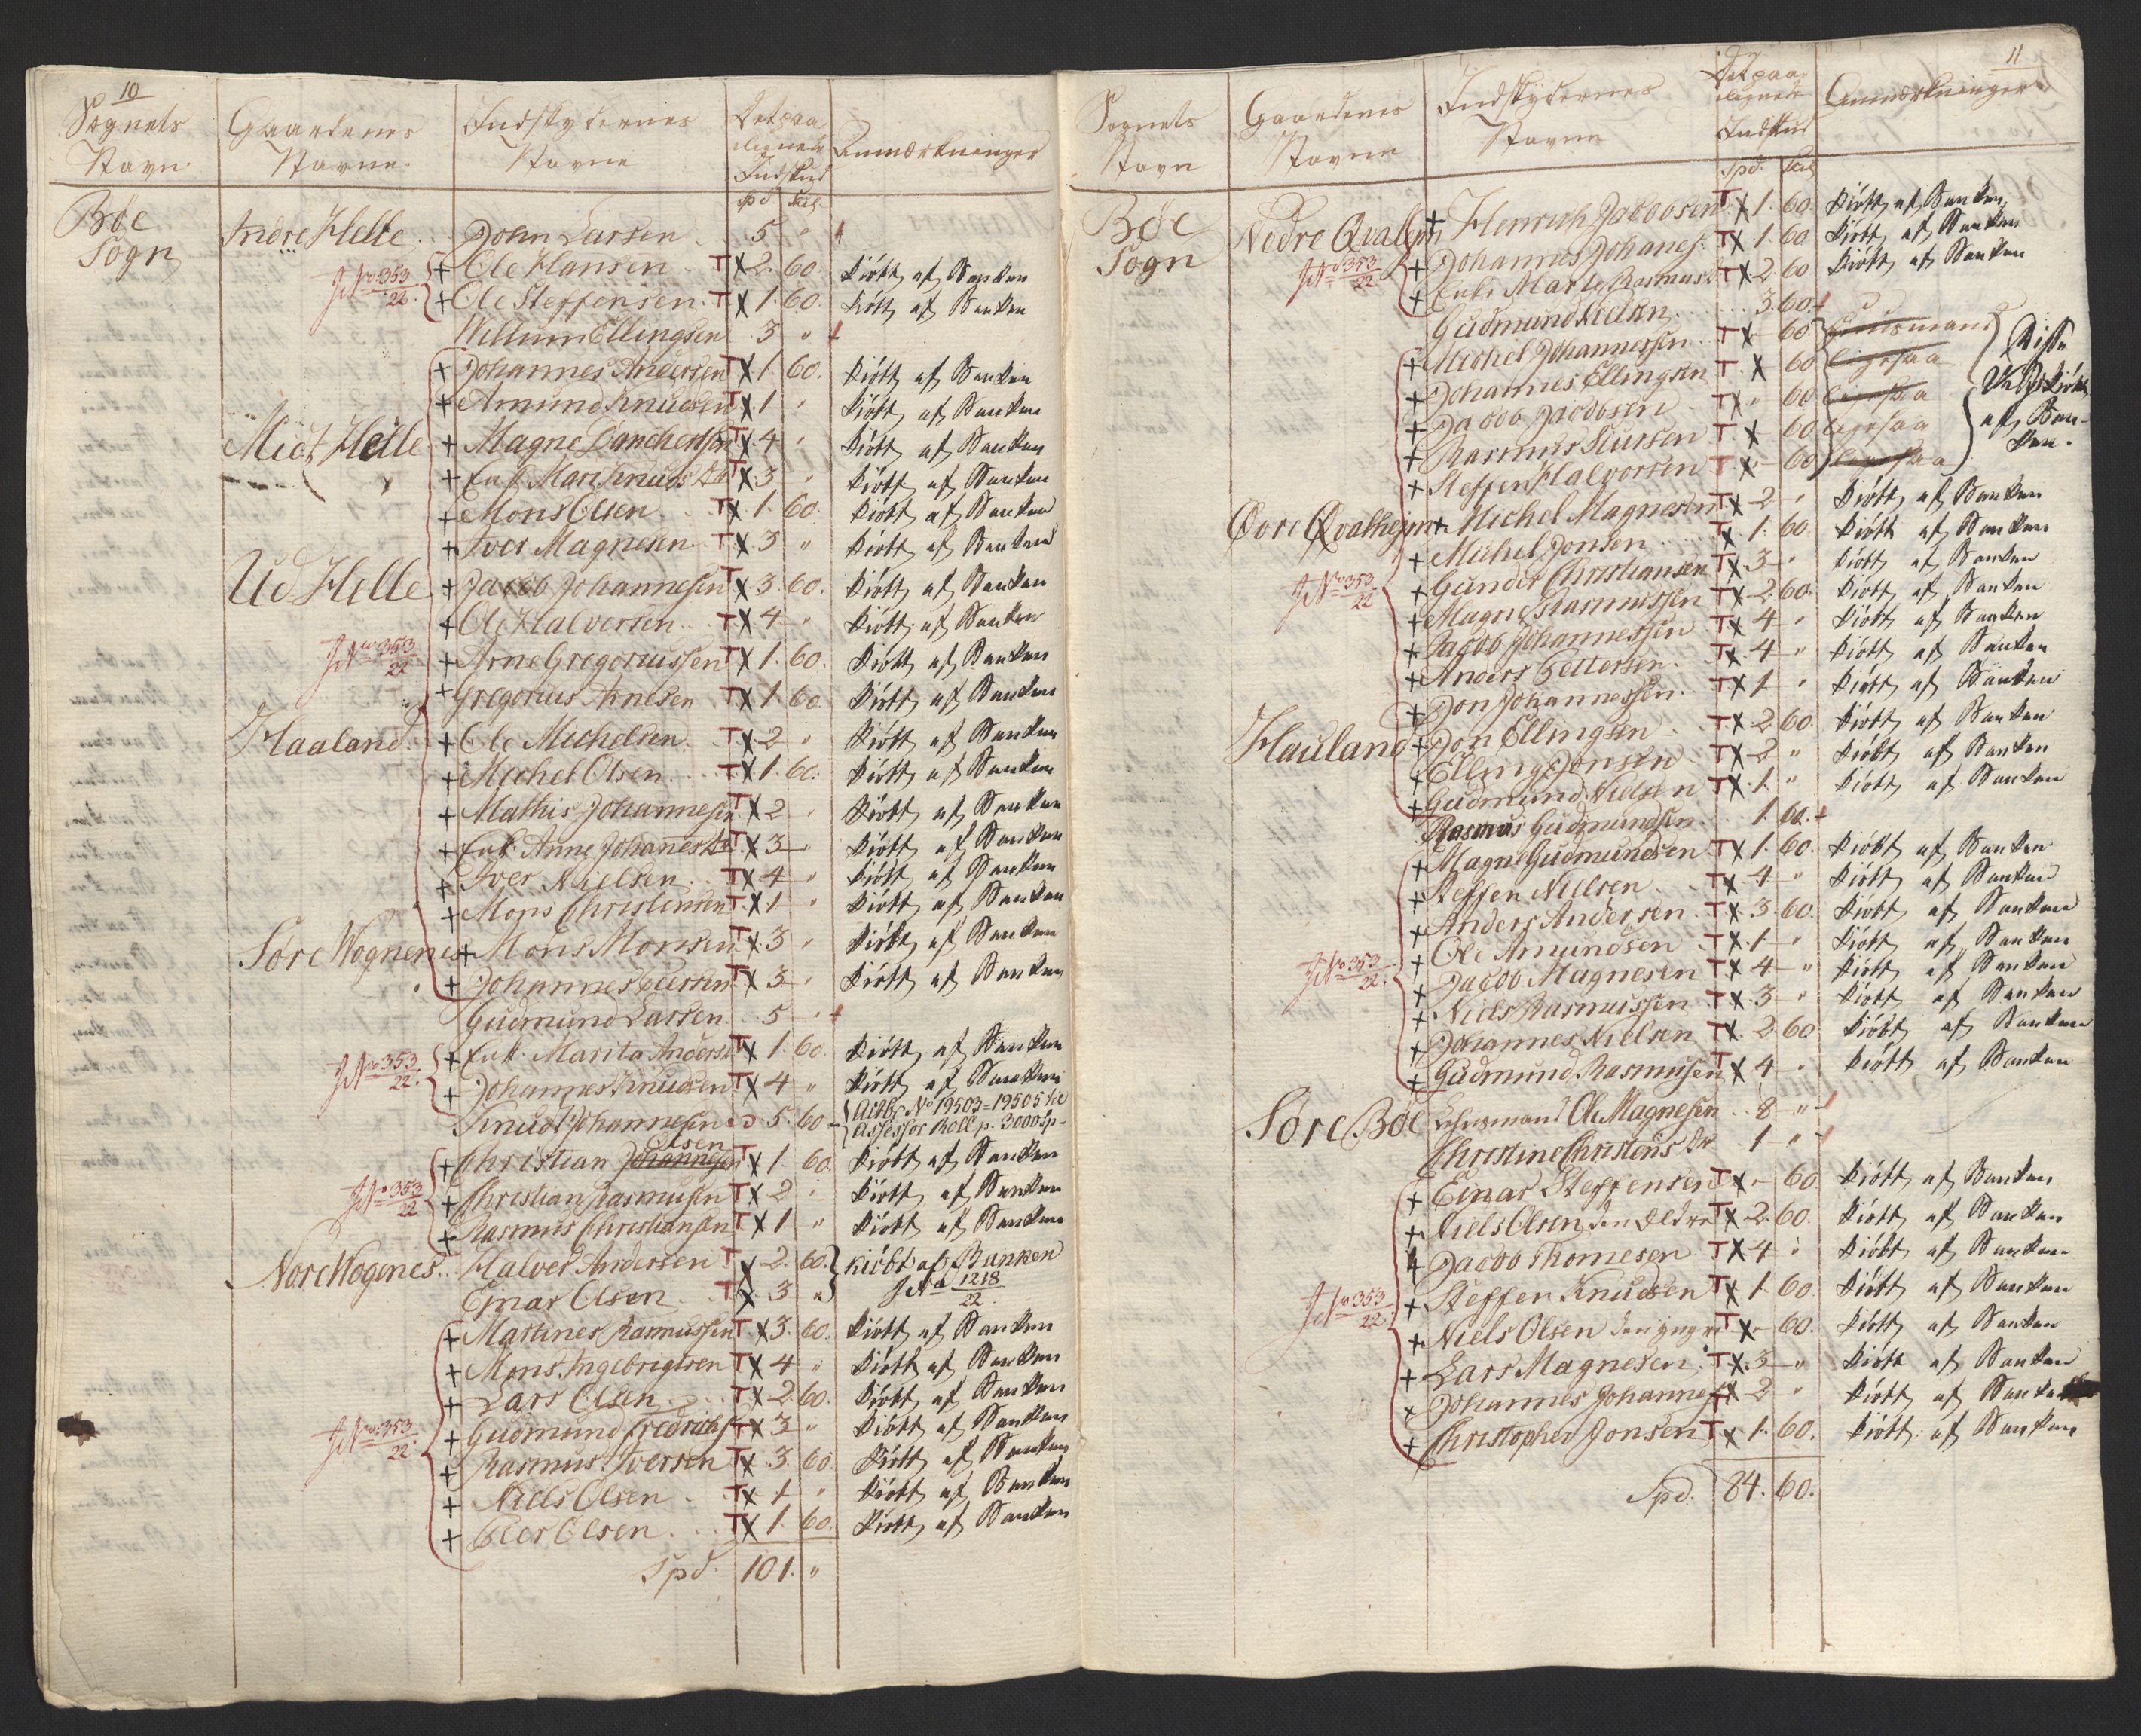 10
Sognets Navn
Gaardenes Navne
Indskydernes Navne
Det paalignede Indskud
Anmærkninger
Spd. Skil
Bøe Sogn
Indre Helle John Larsen 5 "
Jd No 353/22
+ Ole Hansen T X 2. 60. kiøbt af Banken
+ Ole Steffensen T X 1. 60. kiøbt af Banken
Willum Ellingsen 3 "
+ Johannes Andersen T X 1. 60. kiøbt af Banken
+ Amund Knudsen T X 1 " kiøbt af Banken
Midt Helle + Magne Danchertsen T X 4 " kiøbt af Banken
+ Enk. Mari Knuds Dr T X 3 " kiøbt af Banken
+ Mons Olsen T X 1. 60. kiøbt af Banken
+ Iver Magnesen T X 3 " kiøbt af Banken
Ud Helle + Jacob Johannesen T X 3. 60. kiøbt af Banken
+ Ole Halversen T X 4 " kiøbt af Banken
Jd No 353/22
+ Arne Gregoriussen T X 1. 60. kiøbt af Banken
+ Gregorius Arnesen T X 1. 60 kiøbt af Banken
Haaland + Ole Michelsen T X 2 " kiøbt af Banken
+ Michel Olsen T X 1. 60. kiøbt af Banken
+ Mathis Johannesen T X 2 " kiøbt af Banken
+ Enk. Anne Johanes Dr T X 3 " kiøbt af Banken
+ Iver Nielsen T X 4 " kiøbt af Banken
+ Mons Christensen T X 1 " kiøbt af Banken
Søre Wognenes + Mons Monsen T X 3 " kiøbt af Banken
+ Johannes Larsen T X 3 " kiøbt af Banken
Gudmund Larsen 5 "
Jd No 353/22
+ Enk. Marita Anders T X 1. 60. kiøbt af Banken
+ Johannes Knudsen T X 4 " kiøbt af Banken
Knudt Johannesen 5. 60 Actbr No 19503=19505 til
Assessor Roll p. 3000 Sp
Olsen
+ Christian Johannesen T X 1. 60. kiøbt af Banken
Jd No 353/22
+ Christian Rasmusen T X 2 " kiøbt af Banken
+ Rasmus Christiansen T X 1 " kiøbt af Banken
Nore Wogenes Halver Andersen T X 2. 60. kiøbt af Banken
Einar Olsen T X 3 " Jd No 1218/22
+ Martines Rasmussen T X 3. 60. kiøbt af Banken
+ Mons Ingebrigtsen T X 4 " kiøbt af Banken
+ Lars Olsen T X 2. 60. kiøbt af Banken
Jd No 353/22
+ Gudmund Fredrichs T X 3 " kiøbt af Banken
+ Rasmus Iversen T X 3. 60 kiøbt af Banken
+ Niels Olsen T X 1 " kiøbt af Banken
+ Peer Olsen T X 1. 60. kiøbt af Banken
Spd. 101. "
11
Sognets Navn
Gaardenes Navne
Indskydernes Navne
Det paalignede Indskud
Anmærkninger
Spd. Skil
Bøe Sogn
Nedre Qvalhejm + Henrich Jacobsen T X 1. 60. kiøbt af Banken
Jd No 353/22
+ Johannes Johanes. T X 1. 60 kiøbt af Banken
+ Enke Marte Rasmus T X 2. 60 kiøbt af Banken
Gudmund Nielsen 3. 60.
+ Michel Johannessen T X 60 Huusmand
+ Johannes Ellingsen T X 60 ligesaa
+ Jacob Jacobsen T X 60 ligesaa
+ Rasmus Siursen T X 60 ligesaa
+ Steffen Halvorsen T X 60 ligesaa
Disse
kiøbt
af Banken.
Øvre Qvalhejm + Michel Magnesen T X 2 " kiøbt af Banken
+ Michel Jonsen T X 1. 60. kiøbt af Banken
Jd No 353/22
+ Gunder Christiansen T X 3 " kiøbt af Banken
+ Magne Rasmussen T X 2. 60. kiøbt af Banken
+ Jacob Johannessen T X 4 " kiøbt af Banken
+ Anders Pettersen T X 4 " kiøbt af Banken
+ Jon Johannessen T X 1 " kiøbt af Banken
Hauland + Jon Ellingsen T X 2. 60 kiøbt af Banken
+ Elling Jonsen T X 2 " kiøbt af Banken
+ Gudmund Nielsen T X 1. " kiøbt af Banken
Rasmus Gudmundsen 1. 60.
+ Magne Gudmundsen T X 1. 60. kiøbt af Banken
+ Steffen Nielsen T X 4 " kiøbt af Banken
+ Anders Andersen T X 3. 60. kiøbt af Banken
+ Ole Amundsen T X 1. " kiøbt af Banken
Jd No 353/22
+ Jacob Magnesen T X 4 " kiøbt af Banken
+ Niels Rasmussen T X 3 " kiøbt af Banken
+ Johannes Nielsen T X 2. 60 kiøbt af Banken
+ Gudmund Rasmusen T X 4 " kiøbt af Banken
Søre Bøe Lehnsmand Ole Magnesen 8 "
Christine Christens Dr 1 "
+ Einar Steffensen T X - 60 kiøbt af Banken
+ Niels Olsen den Eldre T X 2. 60. kiøbt af Banken
+ Jacob Thomesen T X 4 " kiøbt af Banken
Jd No 353/22
+ Steffen Knudsen T X 1. 60 kiøbt af Banken
+ Niels Olsen den yngre T X - 60. kiøbt af Banken
+ Lars Magnesen T X 3 " kiøbt af Banken
+ Johannes Johannes T X 2 " kiøbt af Banken
+ Christopher Jonsen T X 1. 60. kiøbt af Banken
Spd. 84. 60.